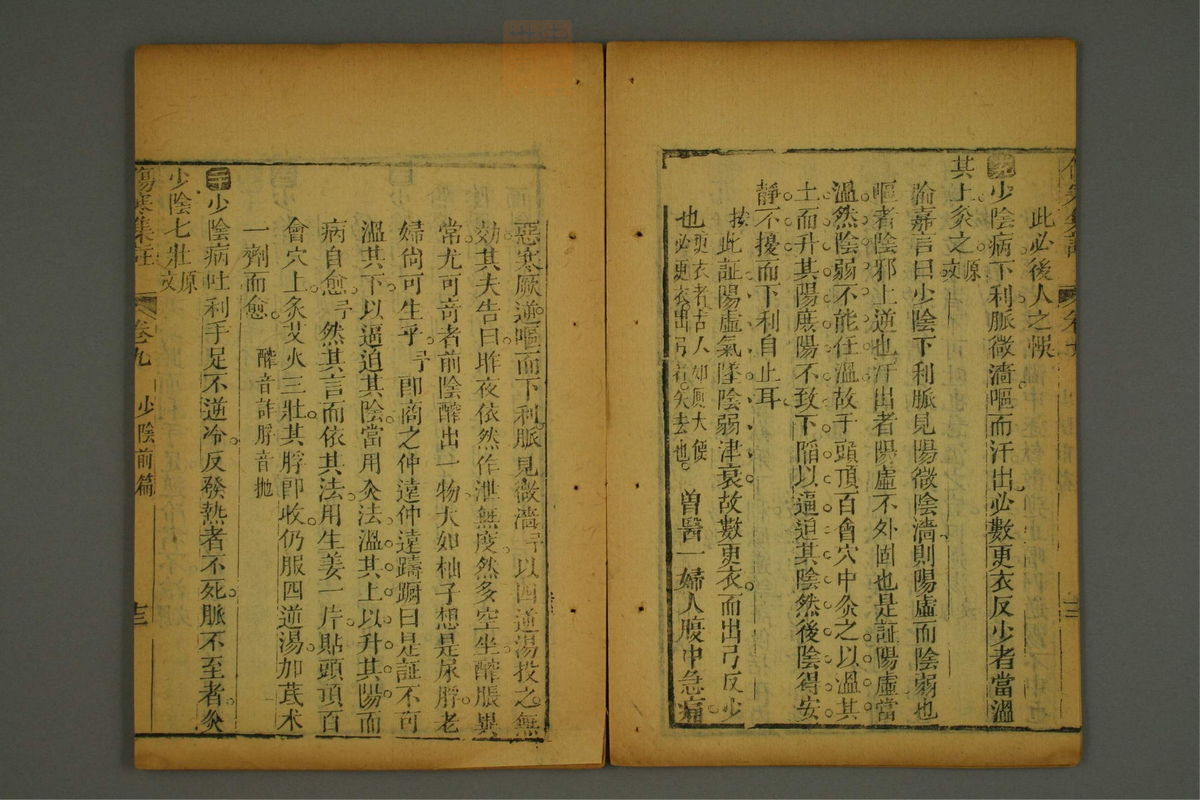 此必後人之悞
少陰病下利脈微濇嘔而汗出必數更衣反少者當溫
其上灸之原文
喻嘉言曰少陰下利脈見陽微陰濇則陽虛而陰弱也
嘔者陰邪上逆也汗出者陽虛不外固也是証陽虛當
溫然陰弱不能任溫故于頭頂百會穴中灸之以溫其
土而升其陽庶陽不致下陷以逼迫其陰然後陰得安
靜不擾而下利自止耳
按此証陽虛氣墜陰弱津衰故數更衣而出弓反少
也更衣者古人如厠大便必更衣出弓者矢去也 曽醫一婦人腹中急痛
惡寒厥逆嘔而下利脈見微濇弓以四逆湯投之無
効其夫告曰昨夜依然作泄無度然多空坐醡脹異
常尤可竒者前陰醡出一物大如柚子想是尿脬老
婦尙可生乎弓卽商之仲逺仲逺躊躕曰是証不可
溫其下以逼迫其陰當用灸法溫其上以升其陽而
病自愈弓然其言而依其法用生姜一片貼頭頂百
會穴上灸艾火三壯其脬卽收仍服四逆湯加茋术
一劑而愈 醡音詐脬音抛
二十少陰病吐利手足不逆冷反發熱者不死脈不至者灸
少陰七壯原文
傷寒集註 卷九 少陰前篇 十三